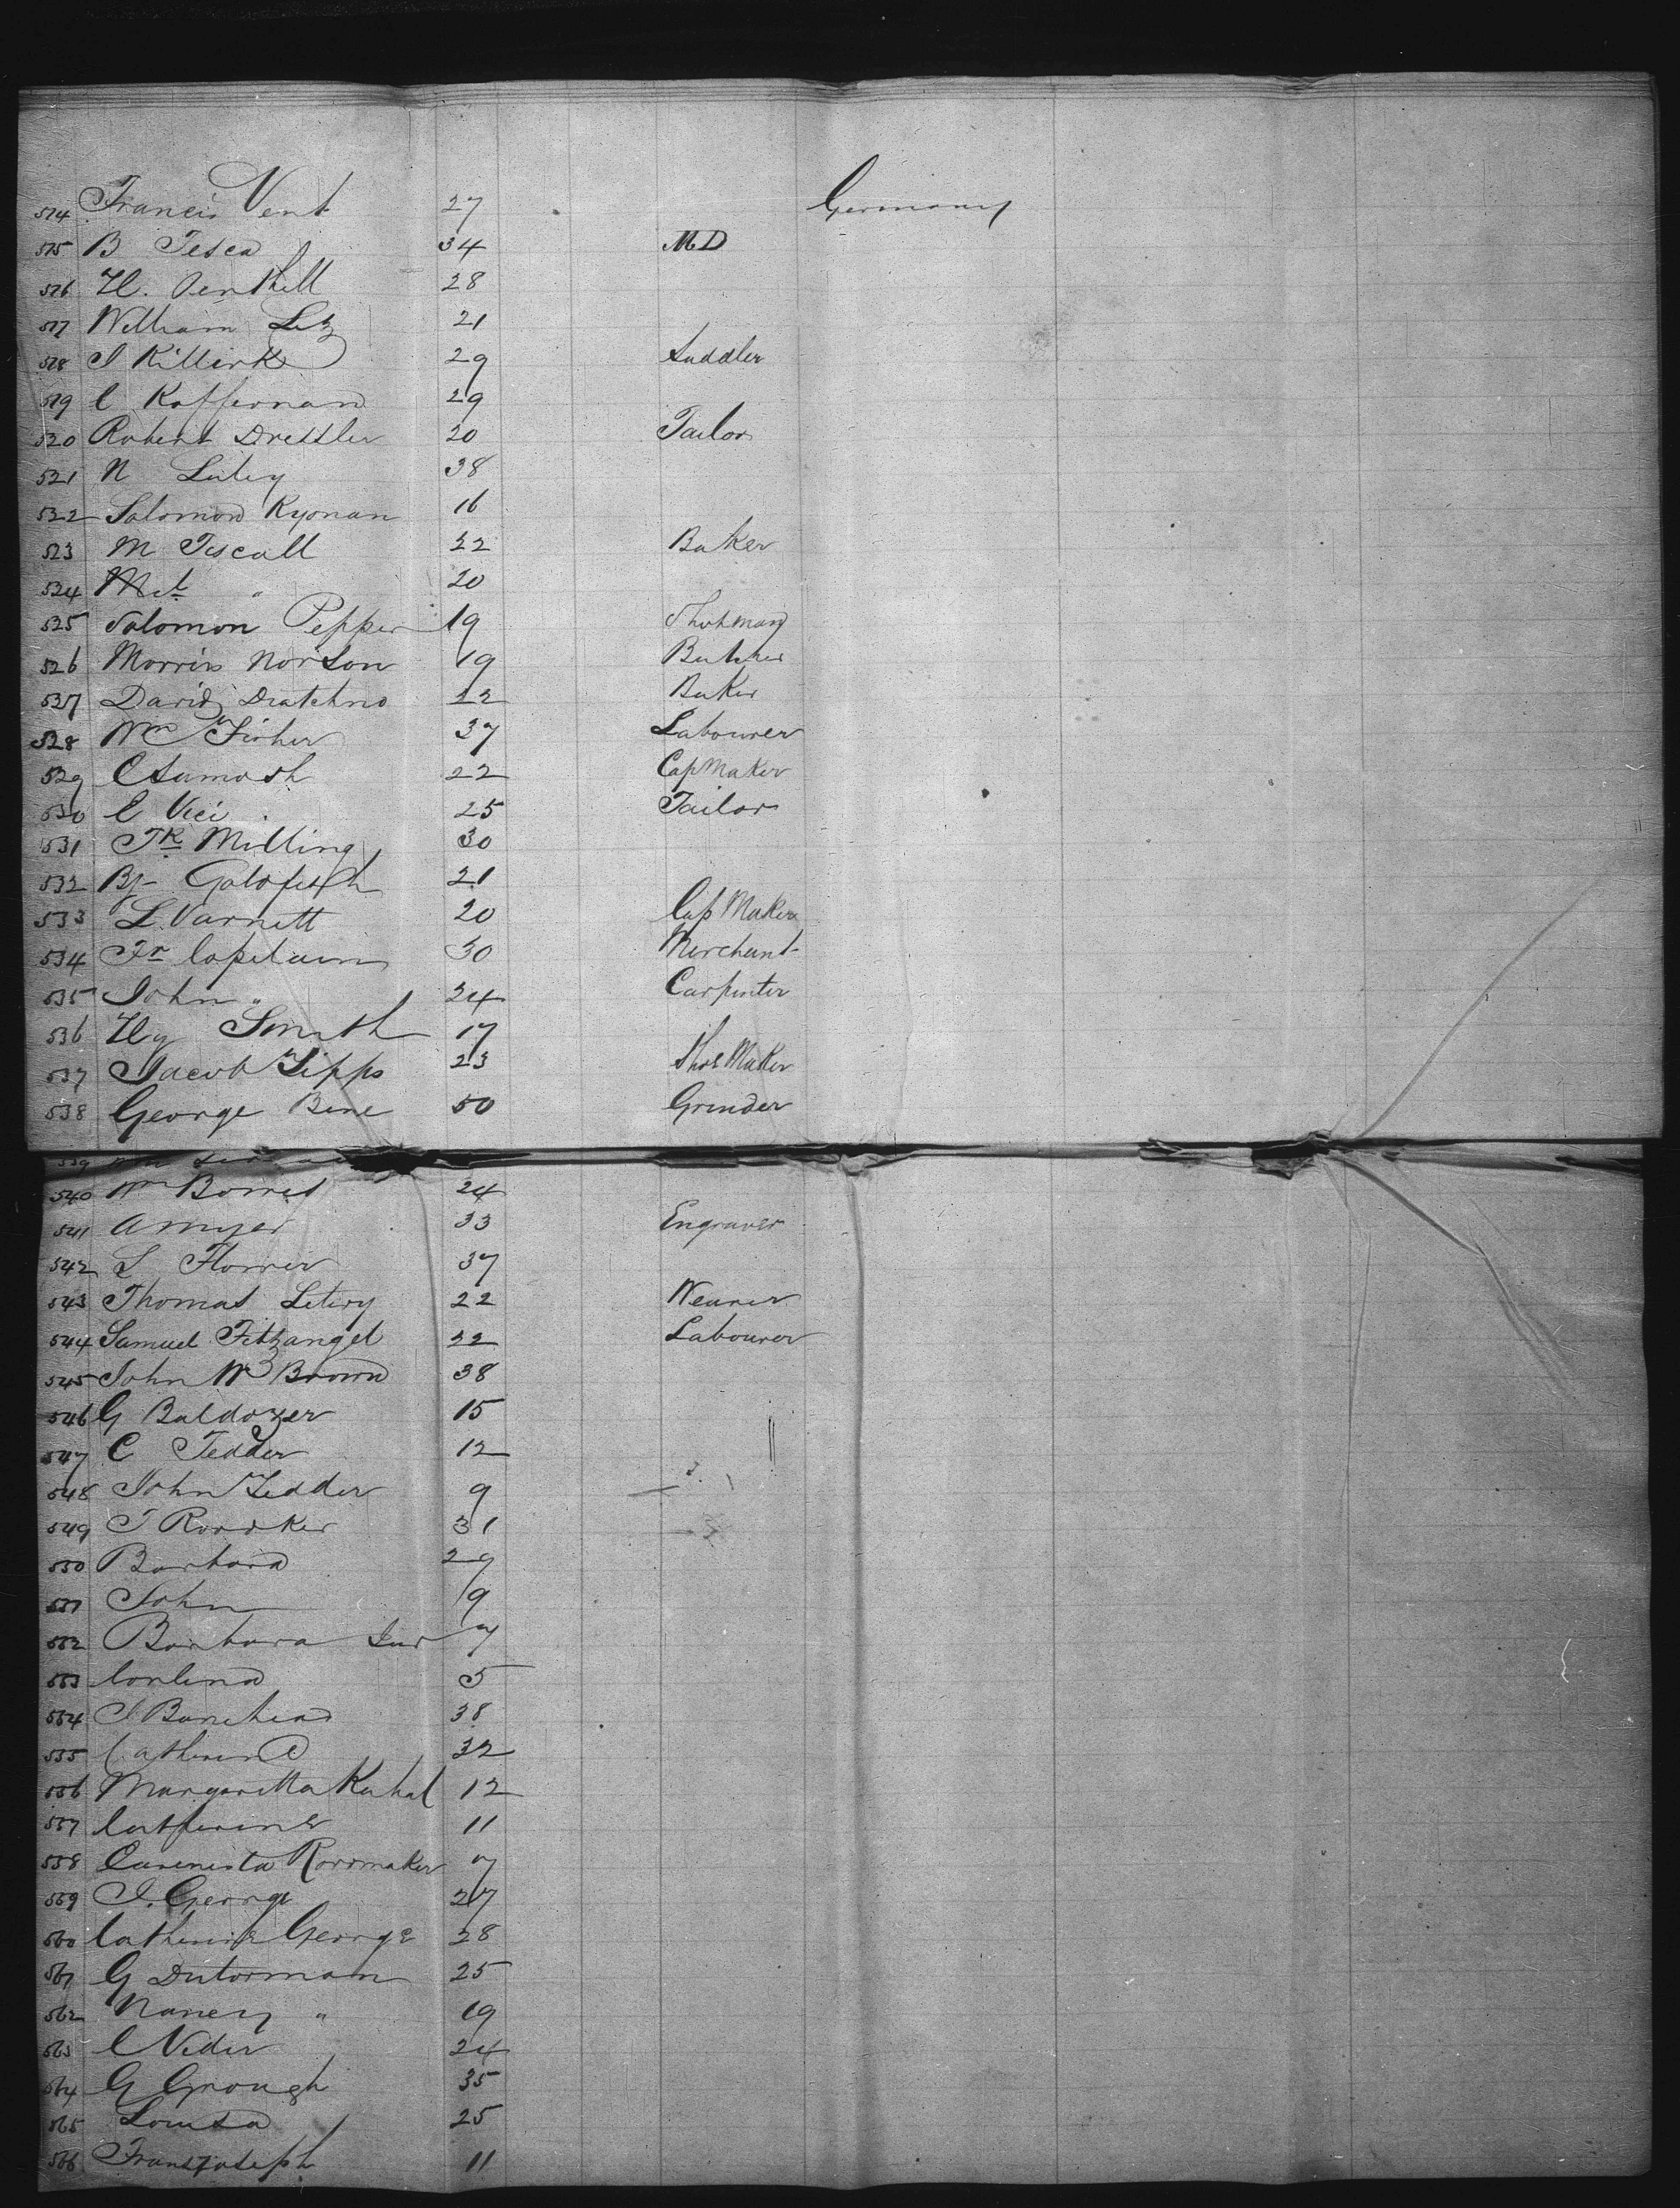 514 Francis Vent 27 Germany
515 B Tesca 34 MD
516 H. Penthell 28
517 William Litz 21
518 J Killirk 29 Saddler
519 C Koffernan 29
520 Robert Drettler 20 Tailor
521 N Luley 38
522 Solomon Kyonan 16
523 M Tiscall 22 Baker
524 " 20
525 Solomon Pepper 19
526 Morris Norton 19 Butcher
527 David Dratchno 22 Baker
528 Wm Fisher 37 Labourer
529 C Samosh 22 Cap Maker
530 C Vici 25 Tailor
531 Milling 30
532 Bj- Goldfisch 21
533 L. Varnett 20 Cap Maker
534 Fr Capitain 30 Merchant
535 John " 24 Carpenter
536 Hy Smith 17
537 Jacob Zipps 23 Shoe Maker
538 George Bene 50 Grinder
539
540 Wm Borres 24
541 A Myer 33 Engraver
542 L Florrer 37
543 Thomas Letivy 22 Weaver
544 Samuel Fitzangel 22 Labourer
545 John Wm Brown 38
546 G Baldozer 15
547 C Tedder 12
548 John Tedder 9
549 J Rordker 31
550 Barbara 29
551 John 9
552 Barbara Jur 7
553 Corlina 5
554 J Banchead 38
555 Catherine 32
556 Margaritta Kahal 12
557 Catherine 11
558 Rorrmaker 7
559 J. George 27
560 Catherine George 28
561 G Dutorman 25
562 Nancy " 19
563 C Neder 24
564 G Grough 35
565 Louisa 25
566 Franz Joseph 11